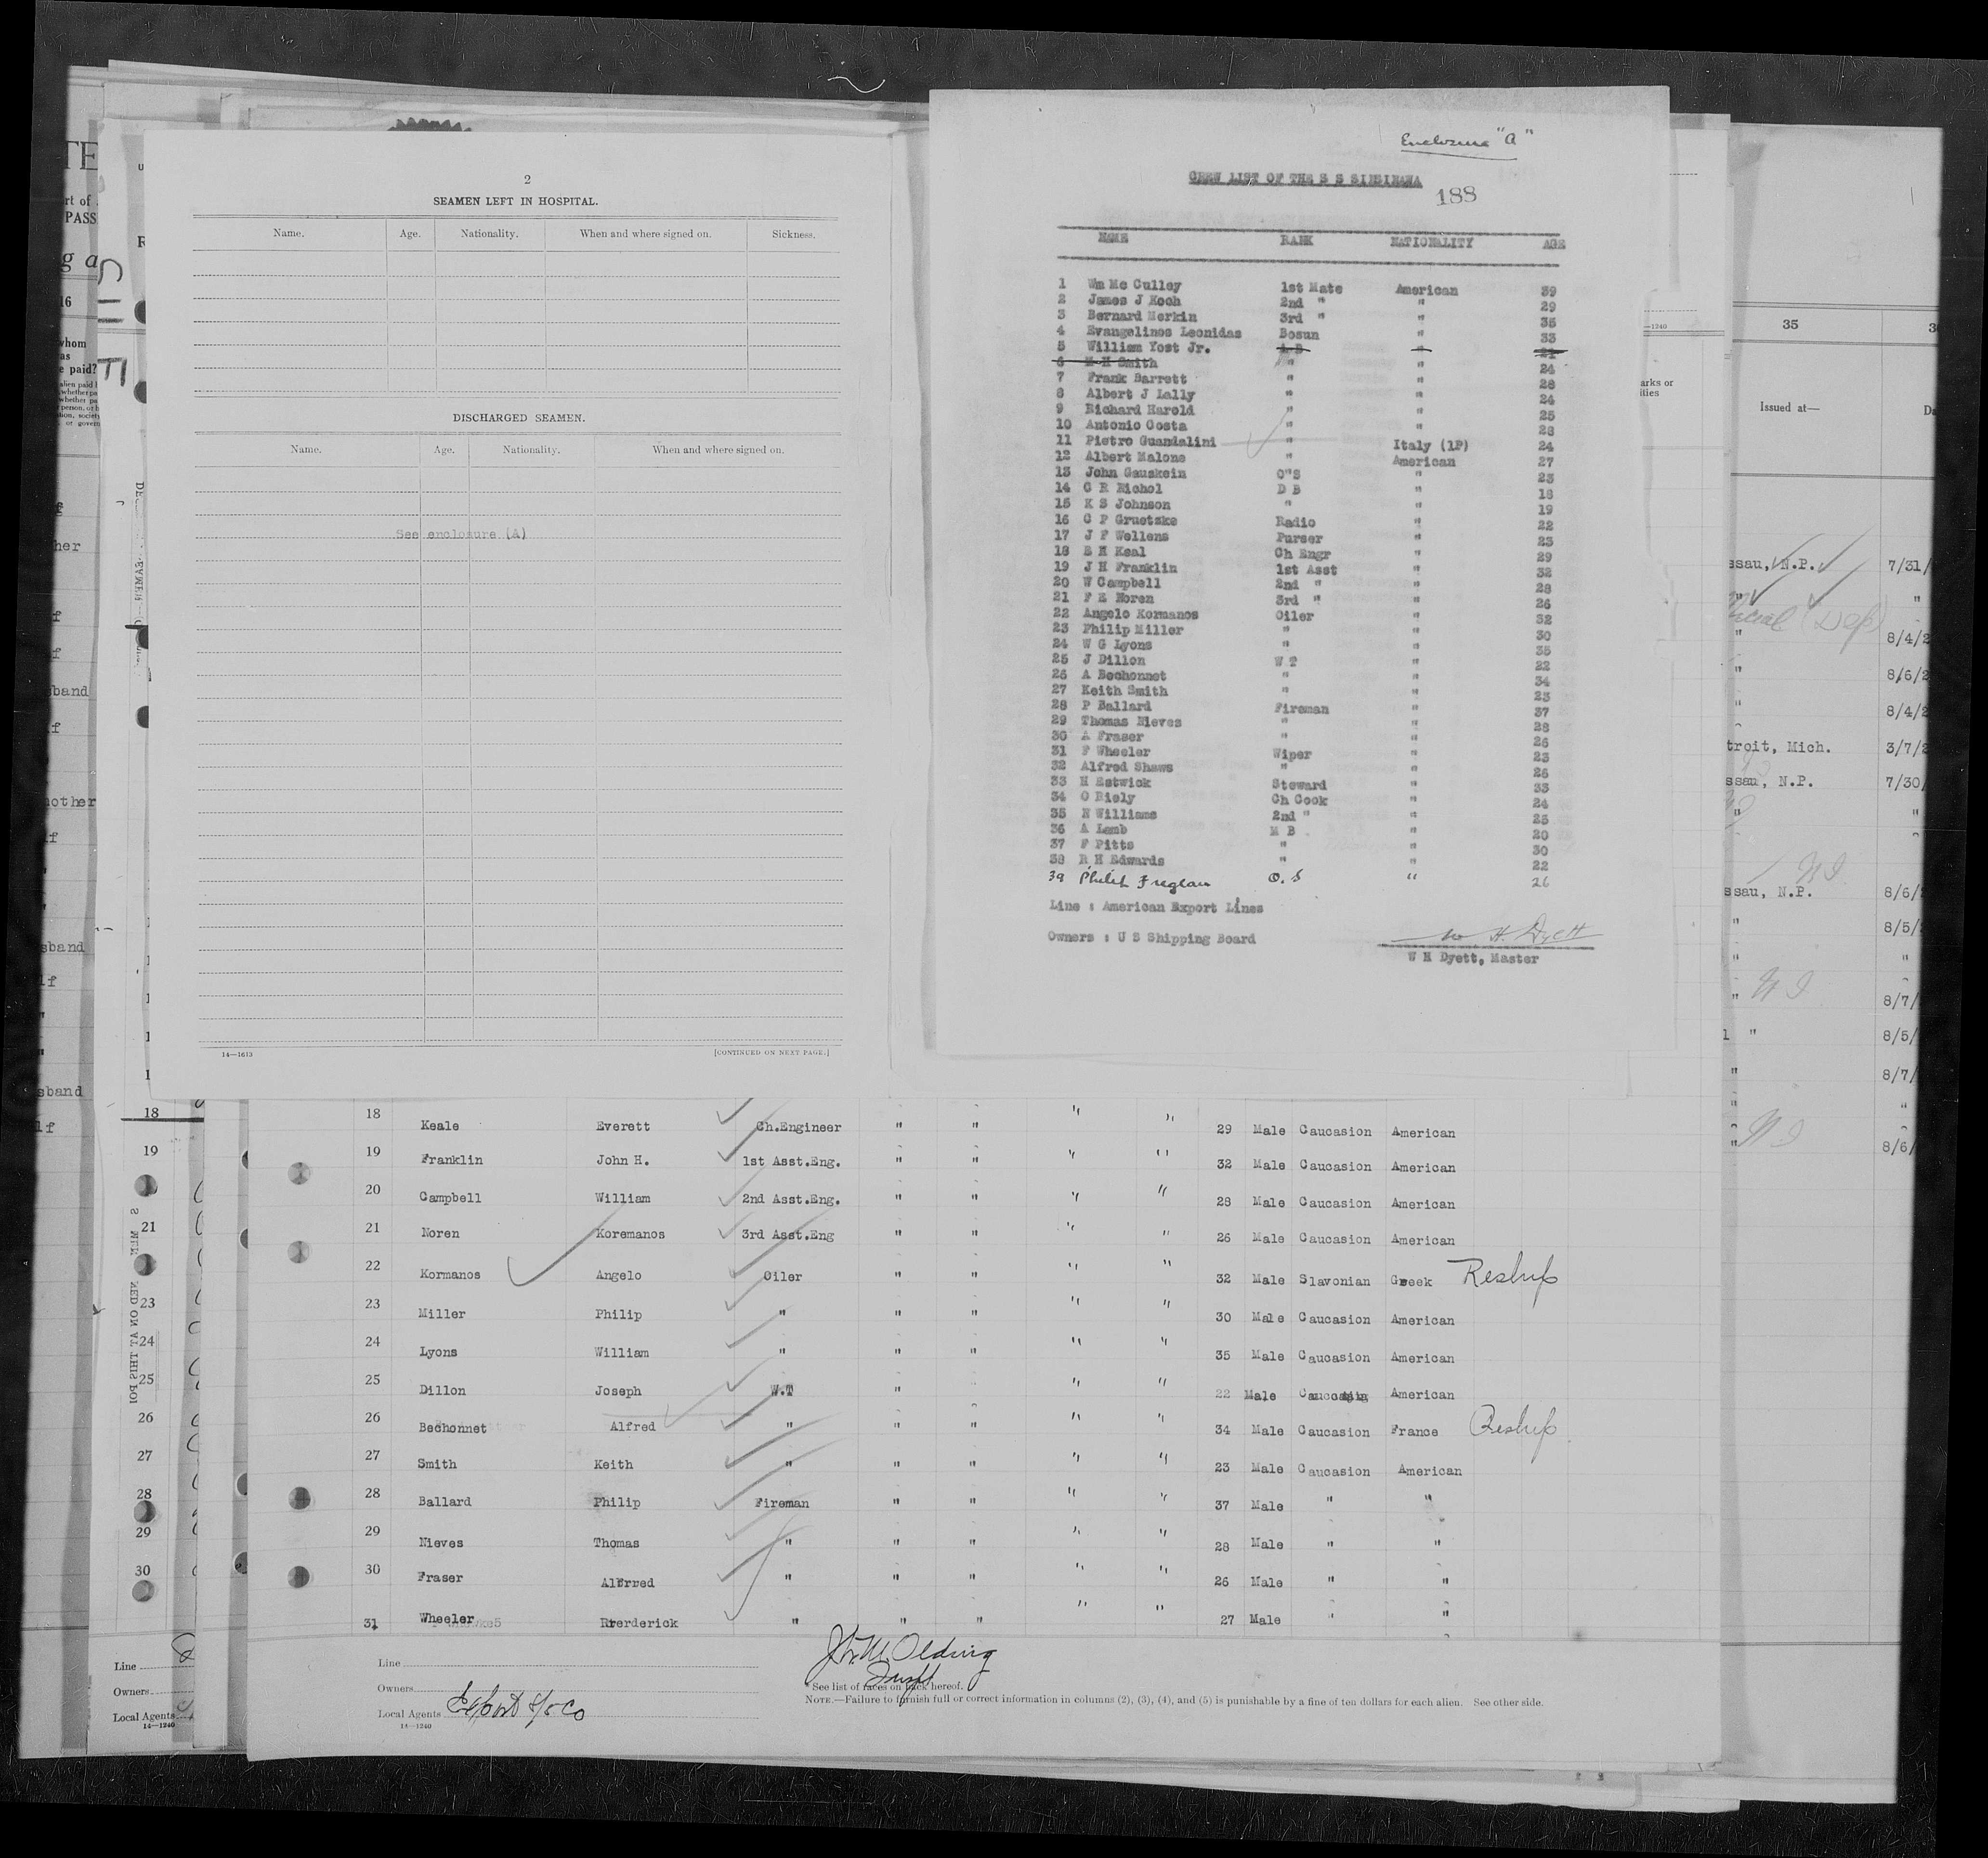 2
SEAMEN LEFT IN HOSPITAL.
Name. Age. Nationality. When and where signed on. Sickness.
DISCHARGED SEAMEN.
Name. Age. Nationality. When and where signed on.
See enclosure (A)
14—1613 [CONTINUED ON NEXT PAGE.]
Enclosure "A"
CREW LIST OF THE S S SINSINAWA
188
NAME RANK NATIONALITY AGE
1 Wm Mc Culley 1st Mate American 39
2 James J Koch 2nd " " 29
3 Bernard Merkin 3rd " " 35
4 Evangelinos Leonidas Bosun " 33
5 William Yost Jr. A B " 21
6 M H Smith " " 24
7 Frank Barrett " " 28
8 Albert J Lally " " 24
9 Richard Harold " " 25
10 Antonio Costa " " 28
11 Pietro Guandalini " Italy (1P) 24
12 Albert Malone " American 27
13 John Gauskein O"S " 23
14 C R Eichol D B " 18
15 K S Johnson " " 19
16 C P Gruetzke Radio " 22
17 J F Wellens Purser " 23
18 E H Keal Ch Engr " 29
19 J H Franklin 1st Asst " 32
20 W Campbell 2nd " " 28
21 F E Noren 3rd " " 26
22 Angelo Kormanos Oiler " 32
23 Philip Miller " " 30
24 W G Lyons " " 35
25 J Dillon W T " 22
26 A Bechonnet " " 34
27 Keith Smith " " 23
28 P Ballard Fireman " 37
29 Thomas Nieves " " 28
30 A Fraser " " 26
31 F Wheeler Wiper " 23
32 Alfred Shaws " " 26
33 H Estwick Steward " 33
34 O Riely Ch Cook " 24
35 N Williams 2nd " " 25
36 A Lamb M B " 20
37 F Pitts " " 30
38 R H Edwards " " 22
39 Philip O. S " 26
Line : American Export Lines
Owners : U S Shipping Board
W. H. Dyett
W H Dyett, Master
18 Keale Everett Ch.Engineer " " " " 29 Male Caucasion American
19 Franklin John H. 1st Asst.Eng. " " " " 32 Male Caucasion American
20 Campbell William 2nd Asst.Eng. " " " " 28 Male Caucasion American
21 Noren Koremanos 3rd Asst.Eng " " " " 26 Male Caucasion American
22 Kormanos Angelo Oiler " " " " 32 Male Slavonian Greek Reship
23 Miller Philip " " " " " 30 Male Caucasion American
24 Lyons William " " " " " 35 Male Caucasion American
25 Dillon Joseph W.T " " " " 22 Male American
26 Bechonnet Alfred " " " " " 34 Male Caucasion France Reship
27 Smith Keith " " " " " 23 Male Caucasion American
28 Ballard Philip Fireman " " " " 37 Male " "
29 Nieves Thomas " " " " " 28 Male " "
30 Fraser Alfrred " " " " " 26 Male " "
31 Wheeler Rrerderick " " " " " 27 Male " "
Line
Owners
Local Agents Export S/S Co
14—1240
See list of races on back hereof.
NOTE.—Failure to furnish full or correct information in columns (2), (3), (4), and (5) is punishable by a fine of ten dollars for each alien. See other side.
18
19
21
23
24
25
26
27
28
29
30
Line
Owners
Local Agents
14—1240
35
Issued at—
ssau, N.P. 7/31/
" "
" 8/4/2
" 8/6/2
" 8/4/2
troit, Mich. 3/7/2
ssau, N.P. 7/30/
ssau, N.P. 8/6/
" 8/5/
" "
" 8/7/
" 8/5/
" 8/7/
" 8/6/